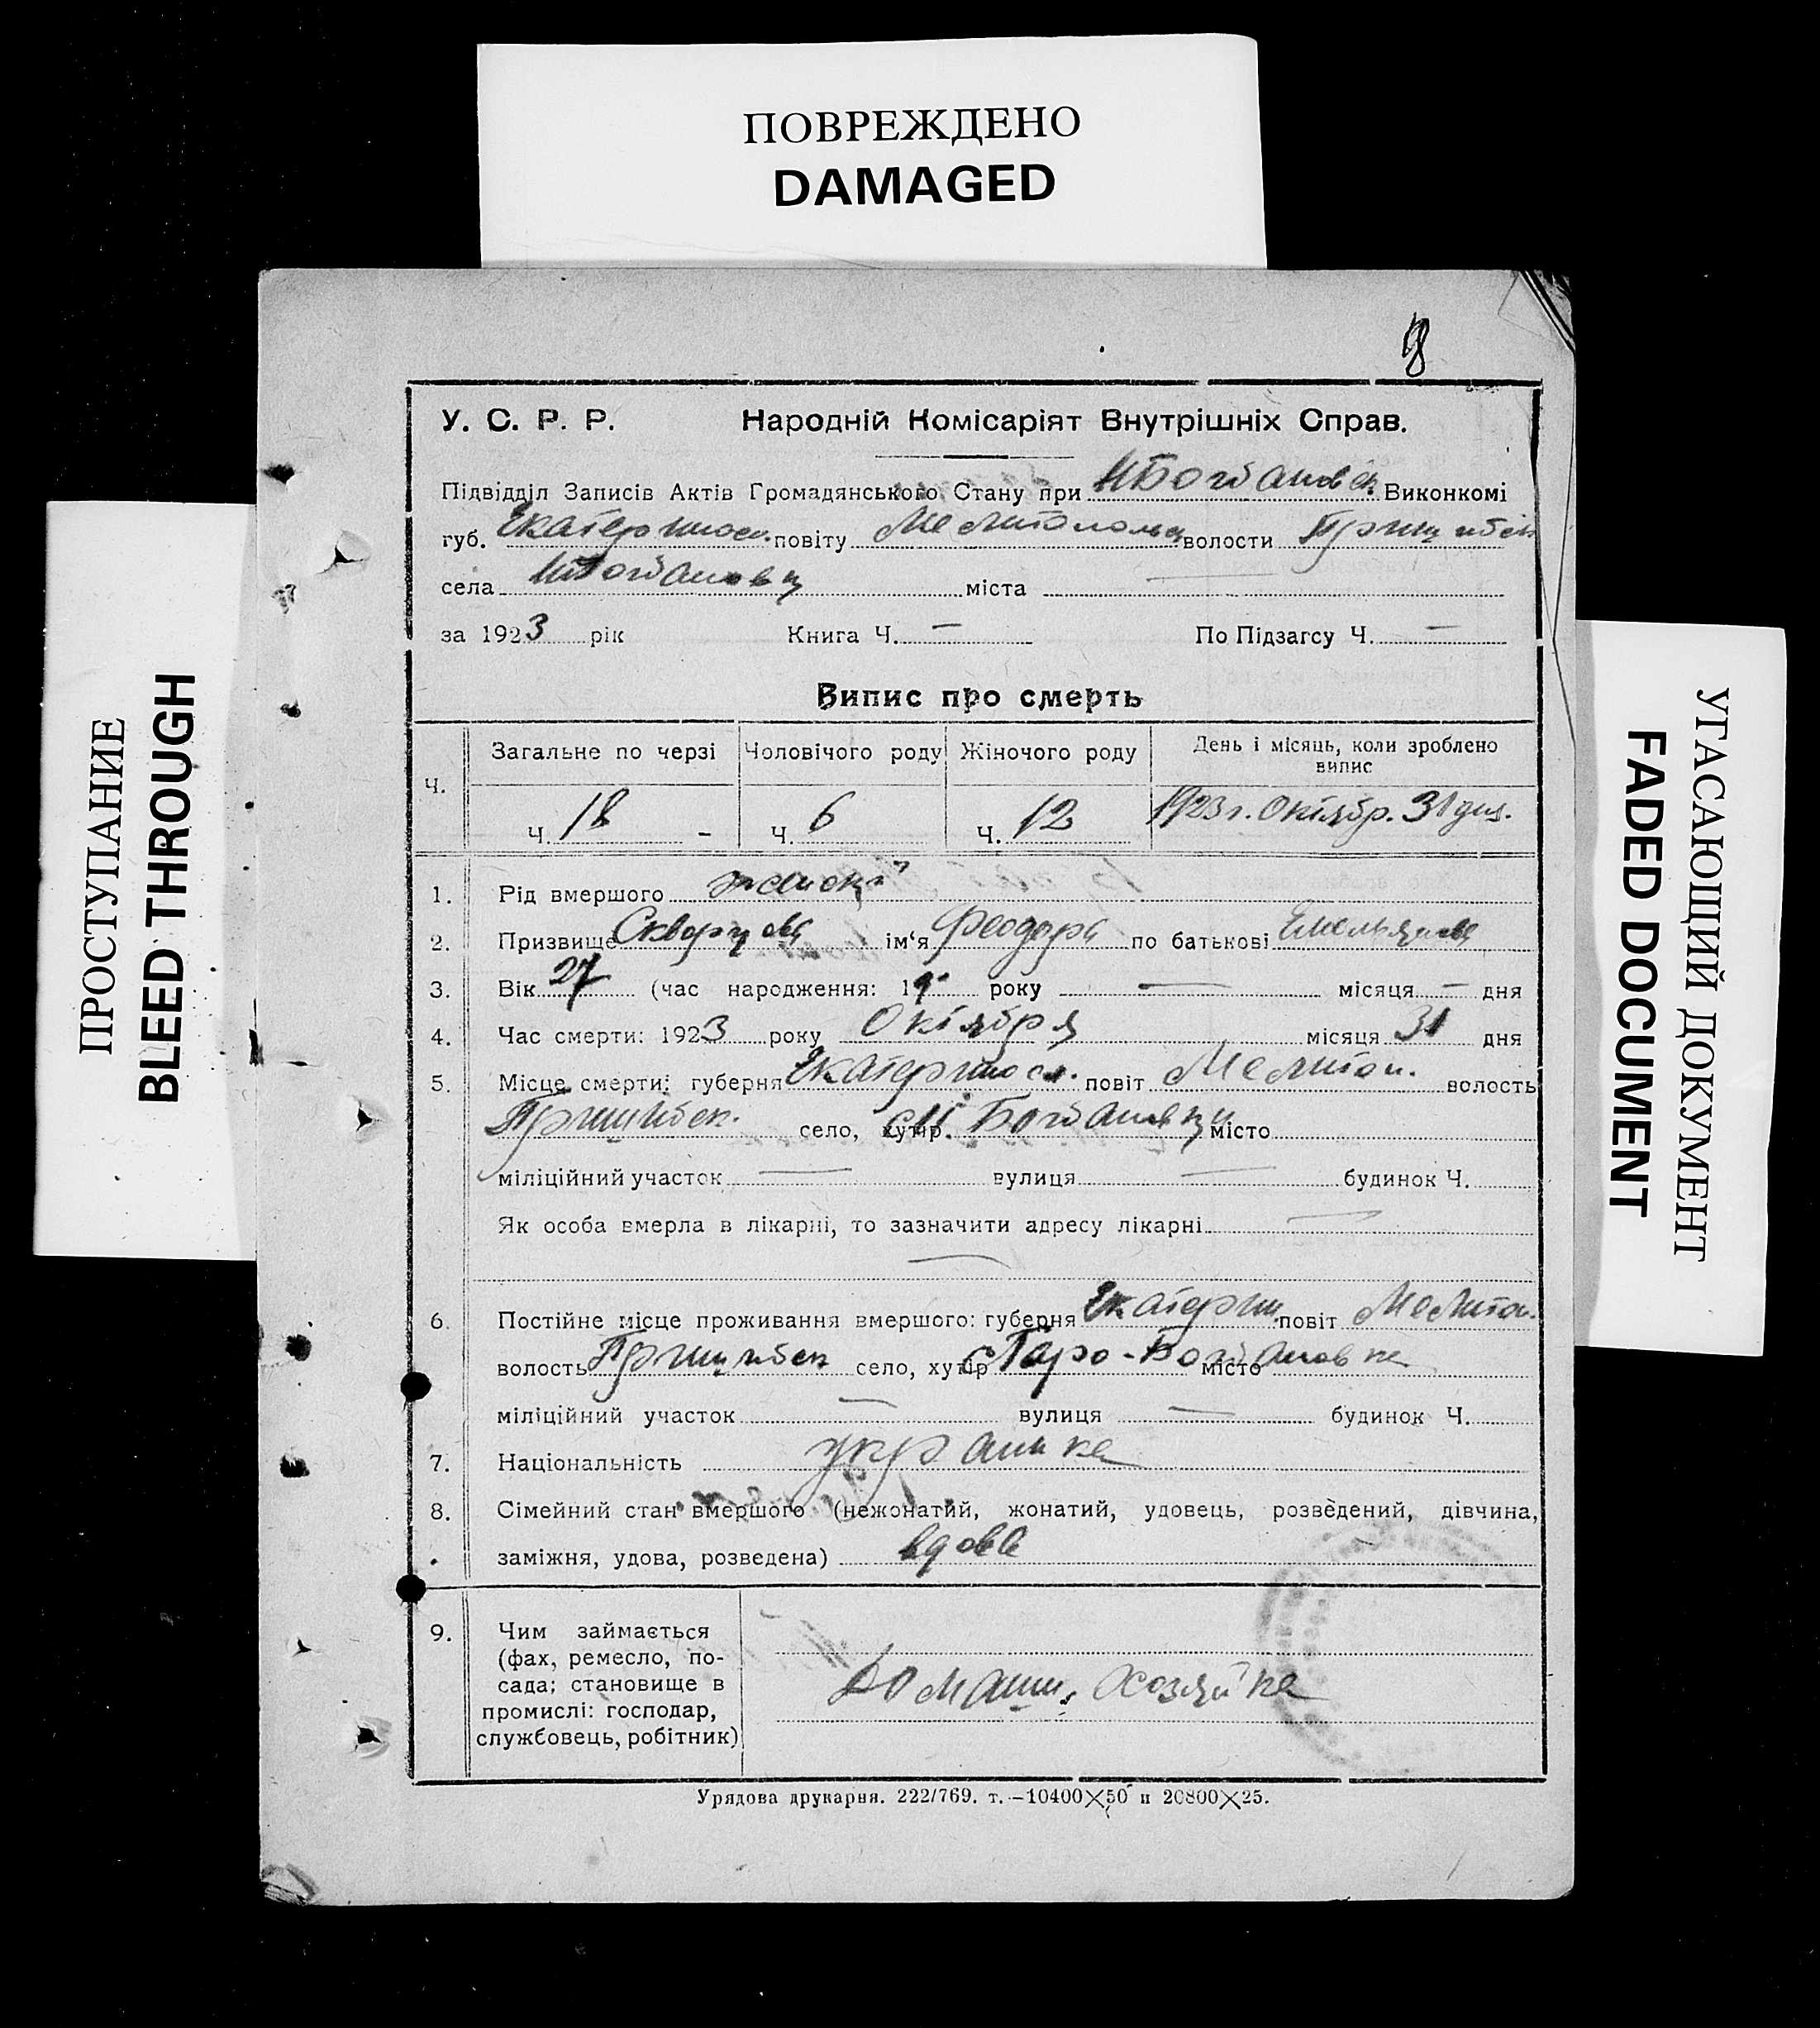 ПОВРЕЖДЕНО
DAMAGED
ПРОСТУПАНИЕ
BLEED THROUGH
УГАСАЮЩИЙ ДОКУМЕНТ
FADED DOCUMENT
8
У. С. Р. Р. Народній Комісаріят Внутрішніх Справ.
Підвідділ Записів Актів Громадянського Стану при НБогдановск. Виконкомі
губ. Екатеринос. повіту Мелитопольс волости Пришибск
села НБогдановки міста —
за 1923 рік Книга Ч. — По Підзагсу Ч. —
Випис про смерть
Ч. Загальне по черзі Чоловічого роду Жіночого роду День і місяць, коли зроблено випис
Ч. 18 - Ч. 6 Ч. 12 1923 г. Октябр. 31 дня.
1. Рід вмершого женский
2. Призвище Скворцова ім‘я Феодора по батькові Емельянова
3. Вік 27 (час народження: 19- року — місяця — дня
4. Час смерти: 1923 року Октября місяця 31 дня
5. Місце смерти: губерня Екатериносл. повіт Мелитоп. волость
Пришибск. село, хутір. Н Богдановки місто
міліційний участок — вулиця — будинок Ч.
Як особа вмерла в лікарні, то зазначити адресу лікарні —
—
6. Постійне місце проживання вмершого: губерня Екатерин. повіт Мелитоп.
волость Пришибск село, хутір Старо-Богдановка місто
міліційний участок — вулиця — будинок Ч.
7. Національність украинка
8. Сімейний стан вмершого (нежонатий, жонатий, удовець, розведений, дівчина,
заміжня, удова, розведена) вдова
9. Чим займається
(фах, ремесло, по-
сада; становище в
промислі: господар,
службовець, робітник)
домашн. хозяйка
Урядова друкарня. 222/769. т.—10400×50 и 20800×25.